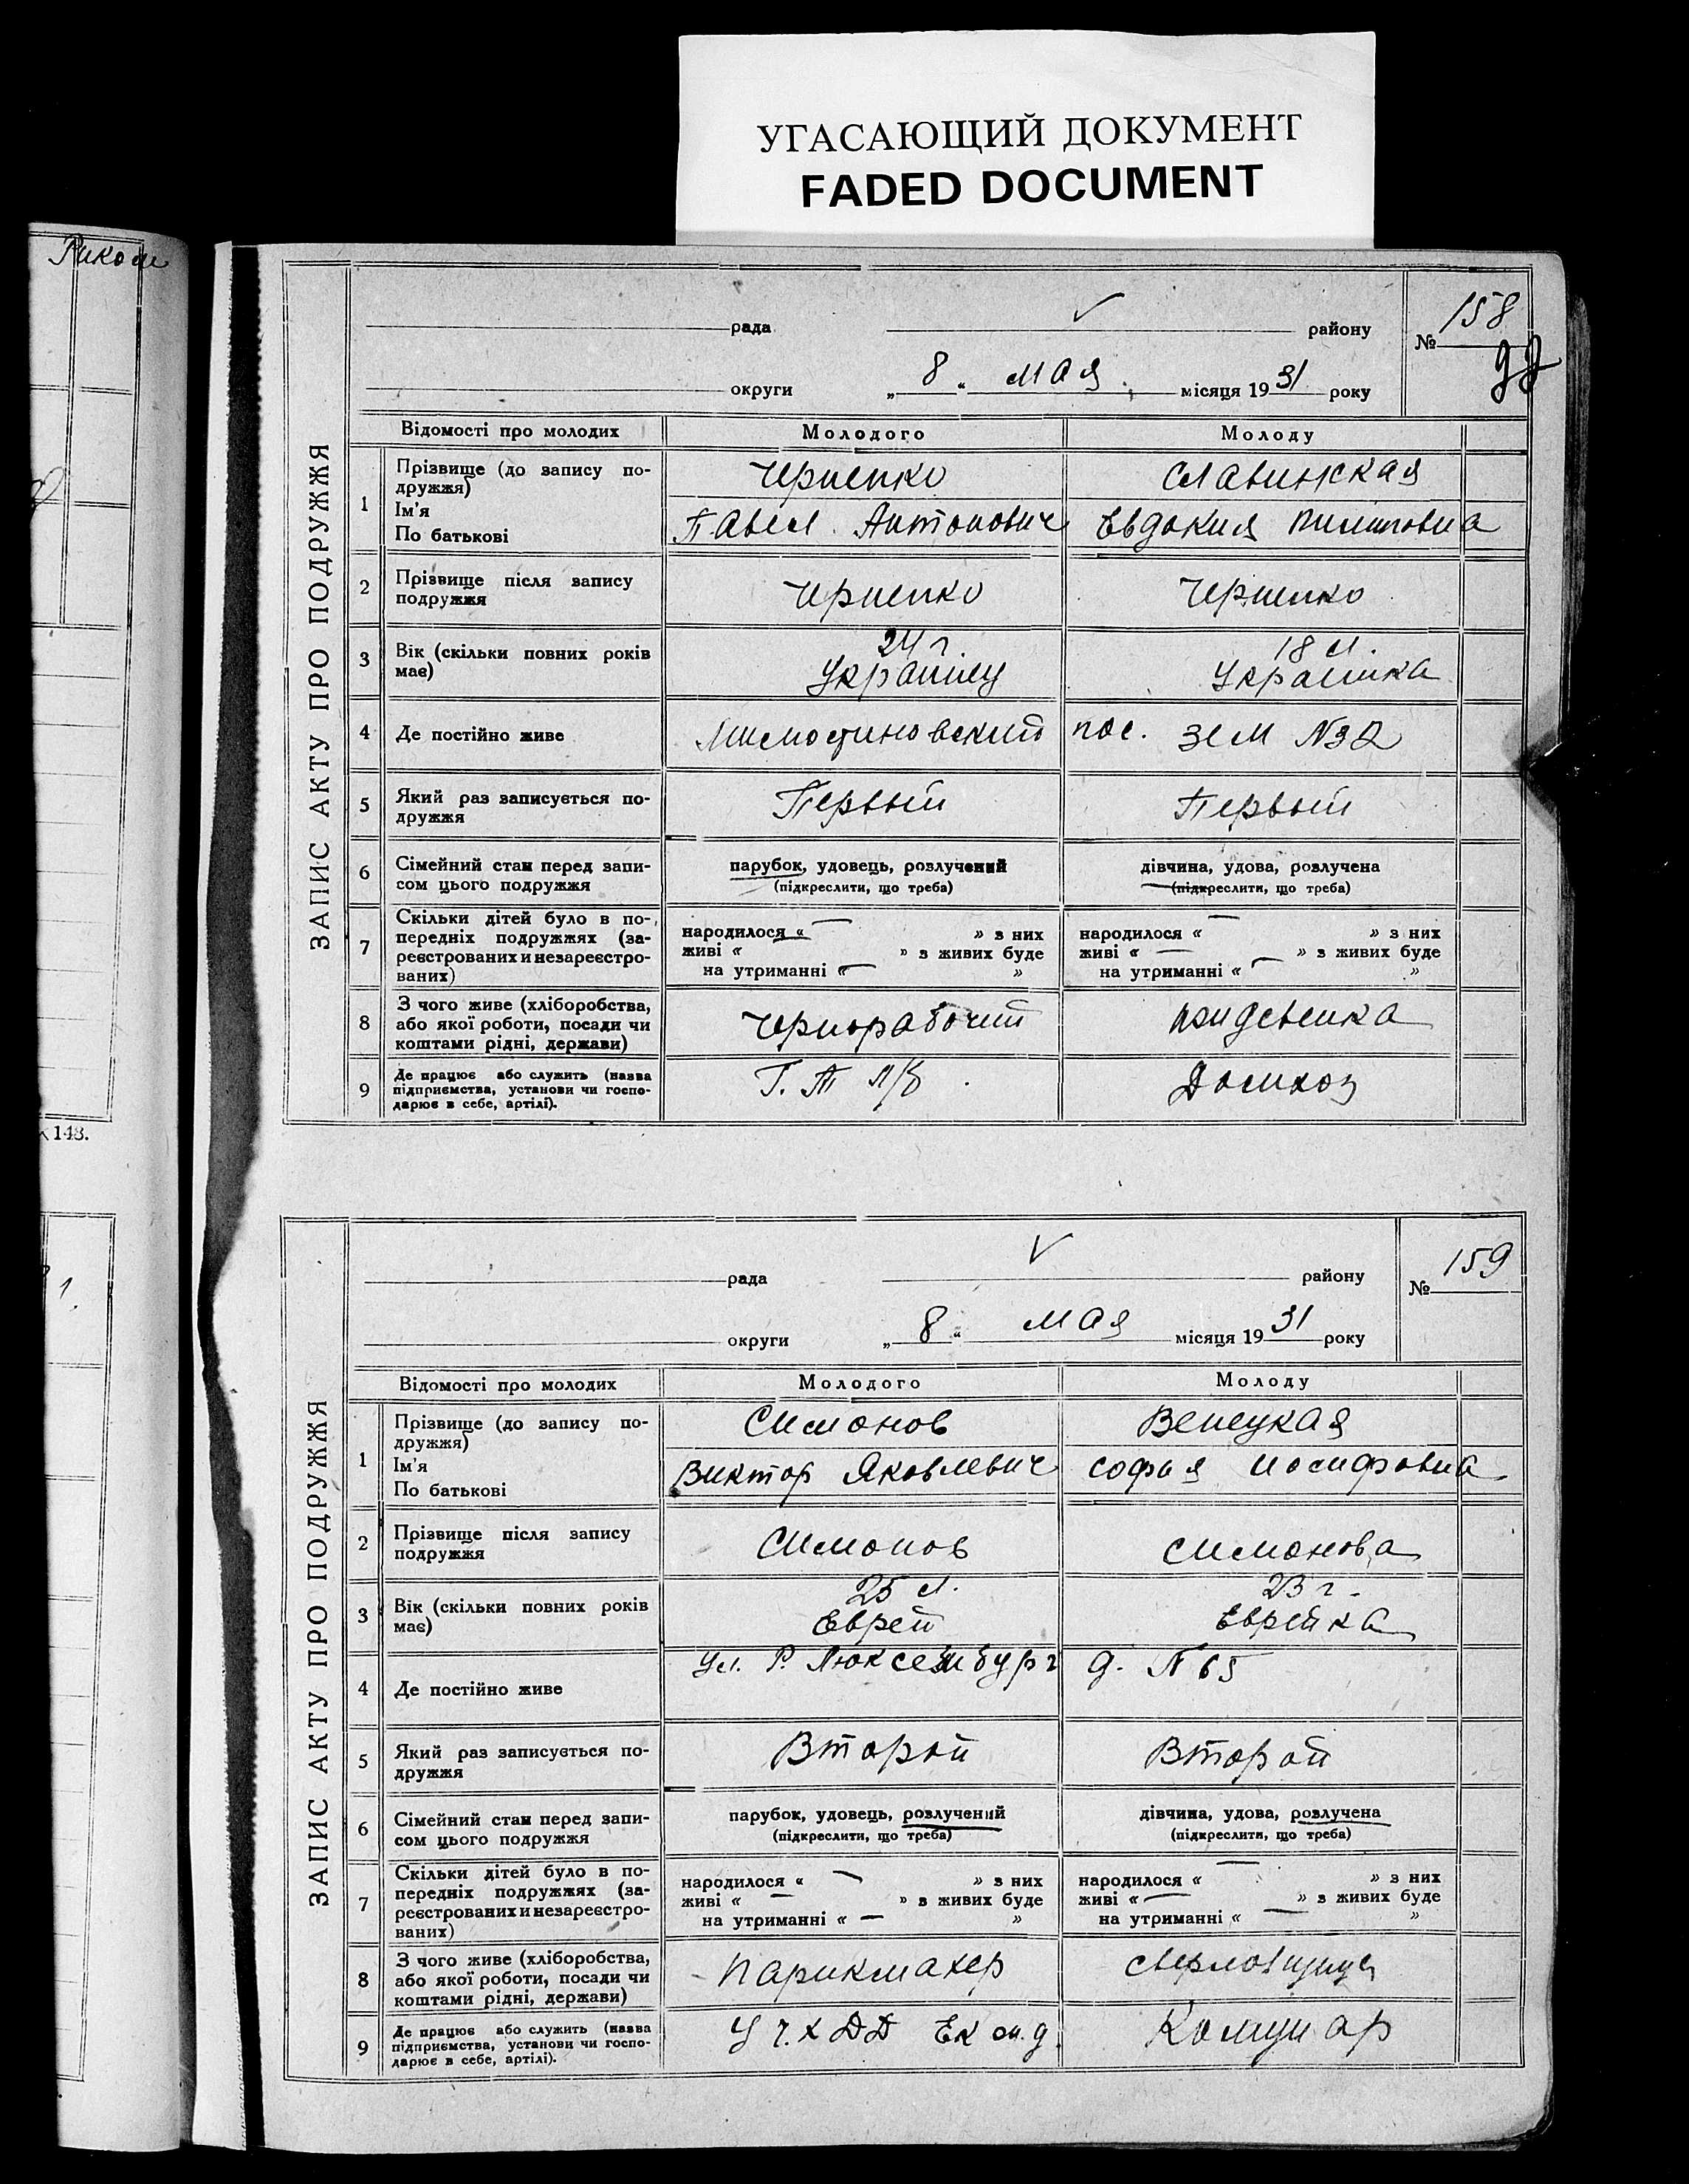 УГАСАЮЩИЙ ДОКУМЕНТ
FADED DOCUMENT
148.
ЗАПИС АКТУ ПРО ПОДРУЖЖЯ
рада району № 158
округи „ 8 “ мая місяця 1931 року
Відомості про молодих Молодого Молоду
1 Прізвище (до запису по-
дружжя) Черненко Славинская
Ім'я
По батькові Павел Антонович Евдокия Филиповна
2 Прізвище після запису
подружжя Черненко Черненко
3 Вік (скільки повних років
має) 24 г. Украинец 18 л. Украинка
4 Де постійно живе пос. зем №32
5 Який раз записується по-
дружжя Первый Первый
6 Сімейний стан перед запи-
сом цього подружжя
парубок, удовець, розлучений дівчина, удова, розлучена
(підкреслити, що треба) (підкреслити, що треба)
7 Скільки дітей було в по-
передніх подружжях (за-
реєстрованих и незареєстро-
ваних)
народилося « — » з них народилося « — » з них
живі « » з живих буде живі « — » з живих буде
на утриманні « — » на утриманні « — »
8 З чого живе (хліборобства,
або якої роботи, посади чи
коштами рідні, держави) Чернорабочий иждевенка
9 Де працює або служить (назва
підприємства, установи чи госпо-
дарює в себе, артілі). Домхоз
ЗАПИС АКТУ ПРО ПОДРУЖЖЯ
рада району № 159
округи „ 8 “ мая місяця 1931 року
Відомості про молодих Молодого Молоду
1 Прізвище (до запису по-
дружжя) Симонов Венецкая
Ім'я
По батькові Виктор Яковлевич Софья Иосифовна
2 Прізвище після запису
подружжя Симонов Симонова
3 Вік (скільки повних років
має) 25 л. Еврей 23 г. Еврейка
4 Де постійно живе ул. Р. Люксембург д. № 65
5 Який раз записується по-
дружжя Второй Второй
6 Сімейний стан перед запи-
сом цього подружжя
парубок, удовець, розлучений дівчина, удова, розлучена
(підкреслити, що треба) (підкреслити, що треба)
7 Скільки дітей було в по-
передніх подружжях (за-
реєстрованих и незареєстро-
ваних)
народилося « — » з них народилося « — » з них
живі « — » з живих буде живі « — » з живих буде
на утриманні « — » на утриманні « — »
8 З чого живе (хліборобства,
або якої роботи, посади чи
коштами рідні, держави) Парикмахер сверловщица
9 Де працює або служить (назва
підприємства, установи чи госпо-
дарює в себе, артілі). Комунар